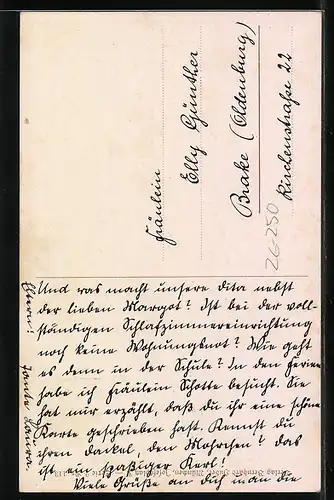 Fräulein
Elly Günther
Brake (Oldenburg)
Kirchenstraße 22
26-250
Und was macht unsere Dita nebst
der lieben Margot? Ist bei der voll-
ständigen Schlafzimmereinrichtung
noch keine Wohnungsnot? Wie geht
es denn in der Schule? In den Ferien
habe ich Fräulein Schotte besucht. Sie
hat mir erzählt, daß du ihr eine schöne
Karte geschrieben hast. Kennst du
ihren Dackel, den Mohrchen? das
ist ein spaßiger Kerl!
Viele Grüße an dich und die
Eltern! Tante